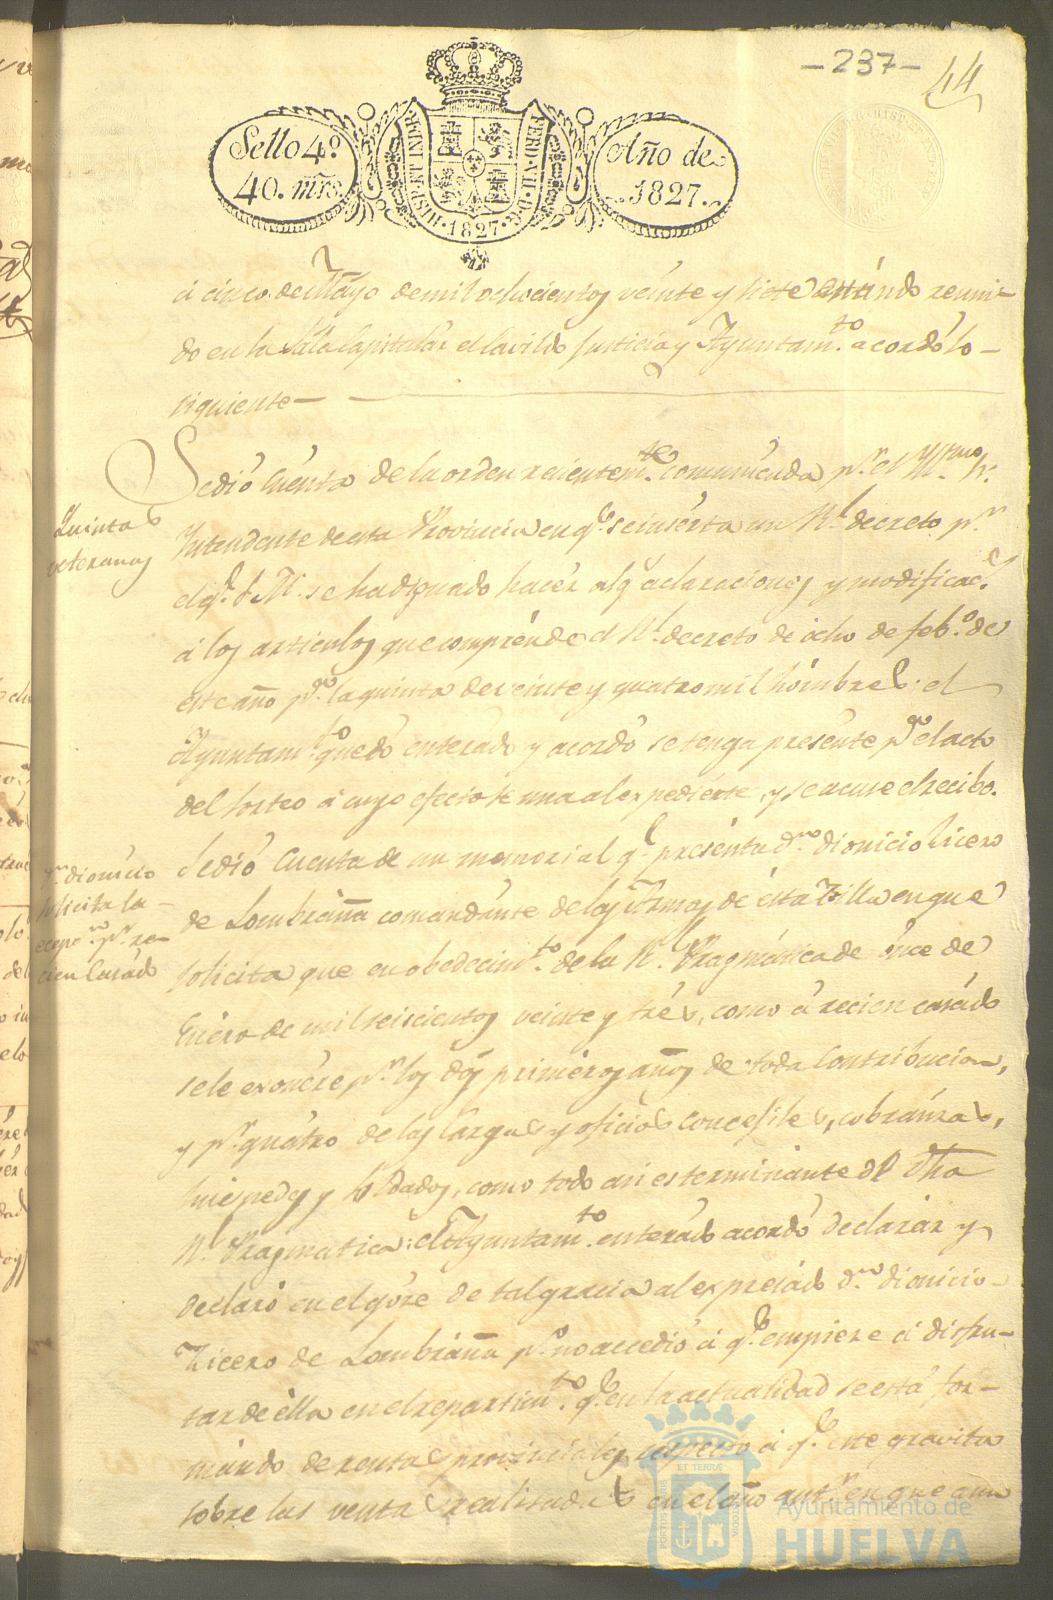 -237-
44
Sello 4º.
40. mrs.
HISP. ET IND. R.
FERD. VII. D. G.
1827.
Año de
1827.
á cinco de Mayo de mil ochocientos veinte y siete estando reuni-
do en la Sala Capitular el Cavildo Justicia y Ayuntam.to acordó lo-
siguiente-
Quintas
veteranos
Se dió Cuenta de la orden recientem.te comunicada p.r el
Intendente de esta Provincia en q.e se inserta un R.l decreto p.r
el q.e S. M. se ha dignado hacer alg.s aclaraciones y modificac.s
á los articulos que comprende el R.l decreto de ocho de feb.o de
este año p.a la quinta de veinte y quatro mil hombres; el
Ayuntam.to quedó enterado y acordó se tenga presente p.a el acto
del sorteo á cuyo efecto se una al expediente, y se acuse el recibo.
D.n dionicio
solicita la
p.r re-
cien Casado
Se dió Cuenta de un memorial q.e presenta d.n dionicio Ricero
de Lombraña comandante de las Armas de ésta Villa en que
solicita que en obedecim.to de la R.l Pragmatica de once de
Enero de mil seiscientos veinte y tres, como á recien casado
se le exonere p.r los dos primeros años de toda Contribucion,
y p.r quatro de las Cargas y oficios Concegiles, cobranzas,
huespedes y Soldados, como todo asi es terminante de dha
R.l Pragmatica: el Ayuntam.to enterado acordó declarar y
declaró en el goze de tal gracia al expresado d.n dionicio-
Ricero de Lombraña p.o no accedió á q.e empieze á disfru-
tar de élla en el repartim.to q.e en la actualidad se está for-
mando de rentas provinciales respecto á q.e este gravita
sobre las ventas realisadas en el año ant.r en que aun
PORTUS MARIS
ET TERRÆ
CUSTODIA
Ayuntamiento de
HUELVA